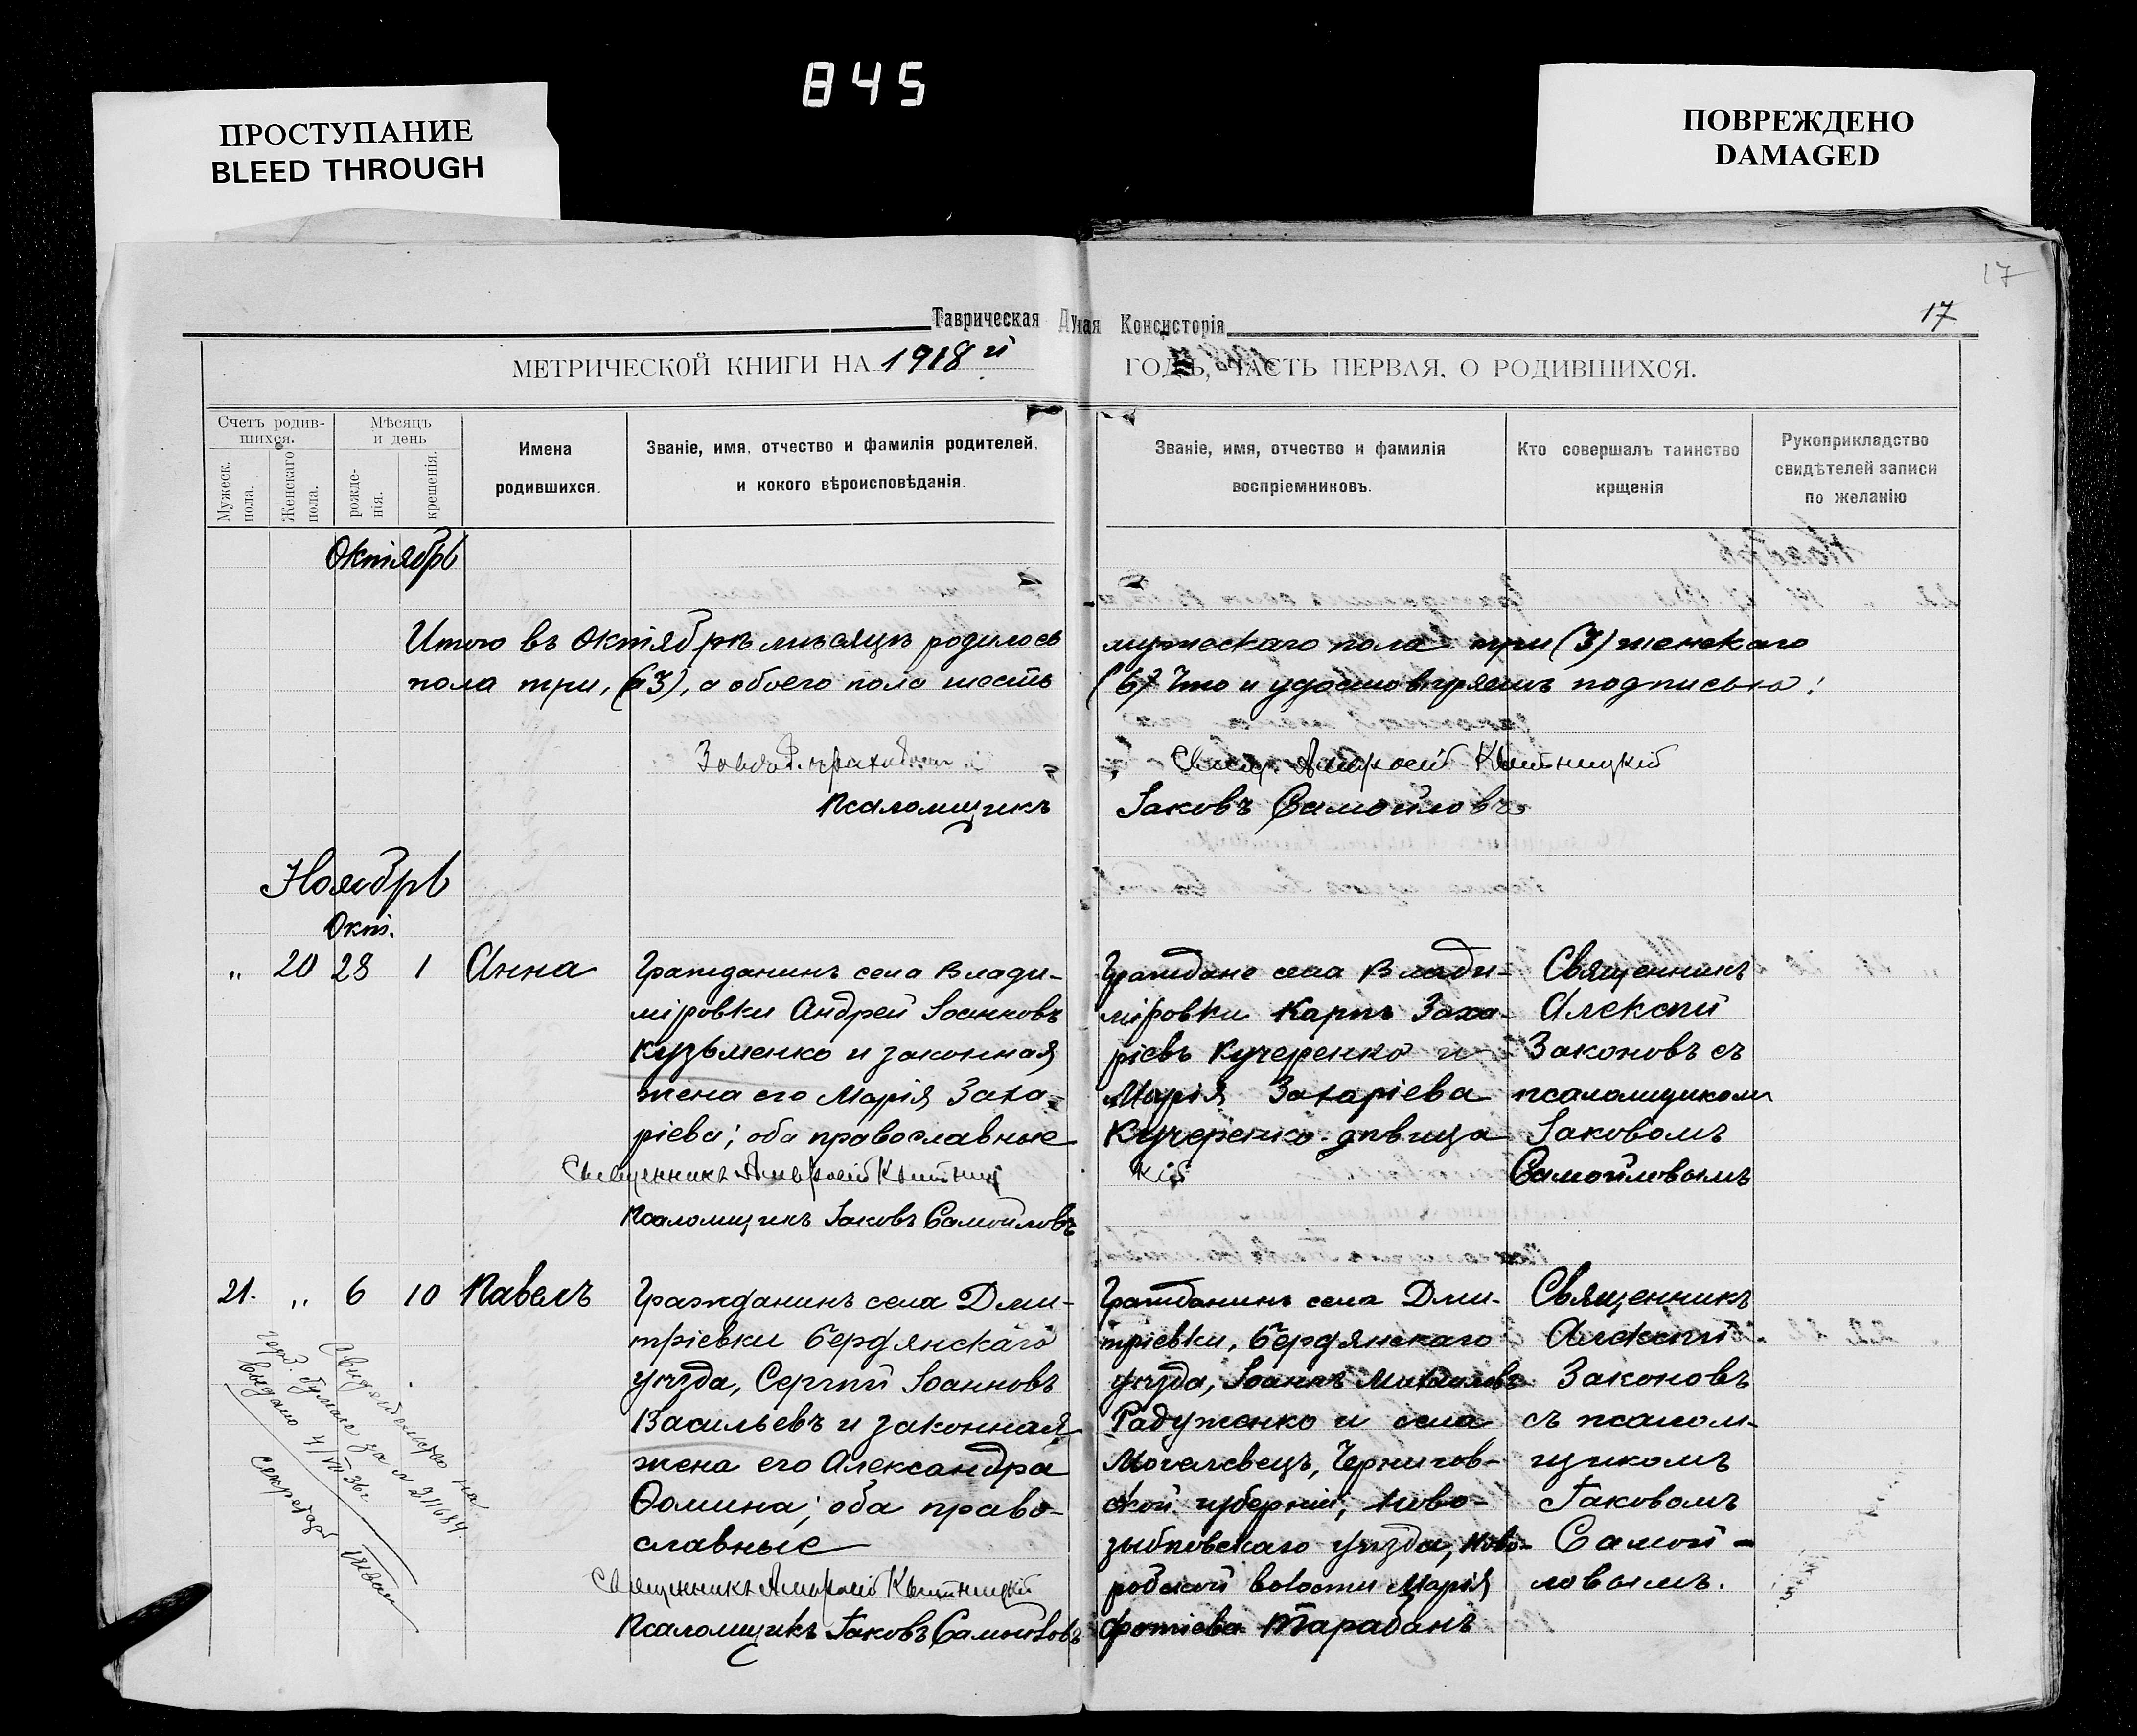 845
ПРОСТУПАНИЕ
BLEED THROUGH
ПОВРЕЖДЕНО
DAMAGED
17
17
Таврическая Духная Консисторія
МЕТРИЧЕСКОЙ КНИГИ НА 1918й ГОДЪ, ЧАСТЬ ПЕРВАЯ, О РОДИВШИХСЯ.
Счетъ родив-
шихся.
Мужеск.
пола.
Женскаго
пола.
Мѣсяцъ
и день
рожде-
нія.
крещенія.
Имена
родившихся.
Званіе, имя, отчество и фамилія родителей,
и кокого вѣроисповѣданія.
Званіе, имя, отчество и фамилія
воспріемниковъ.
Кто совершалъ таинство
крщенія
Рукоприкладство
свидѣтелей записи
по желанію
Октябрь
Итого въ Октябрѣ мѣсяцѣ родилось мужескаго пола три (3) женскаго
пола три, (3), а обоего пола шесть (6) Что и удостовѣряемъ подписью:
Свящ. Амвросій Квитницкій
Псаломщикъ Іаковъ Самойловъ
Ноябрь
Окт.
„ 20 28 1 Анна
Гражданинъ села Влади-
міровки Андрей Іоанновъ
Кузьменко и законная
жена его Марія Заха-
ріева; оба православные
Священникъ Амвросій Квитниц
кій
Псаломщикъ Іаковъ Самойловъ
Граждане села Влади-
міровки Карпъ Заха-
ріевъ Кучеренко и
Марія Захаріева
Кучеренко - дѣвица
Священникъ
Алексій
Законовъ съ
псаломщикомъ
Іаковомъ
Самойловымъ
21. „ 6 10 Павелъ
Гражданинъ села Дми-
тріевки Бердянскаго
уѣзда, Сергій Іоанновъ
Васильевъ и законная
жена его Александра
Ѳомина; оба право-
славные
Священникъ Амвросій Квитницкій
Псаломщикъ Іаковъ Самойловъ
Гражданинъ села Дми-
тріевки, Бердянскаго
уѣзда, Іоаннъ Михайловъ
Радуженко и села
Чернигов-
ской губерніи, Ново-
зыбковскаго уѣзда, Ново-
робской волости Марія
Фотіева Тарабанъ
Священникъ
Алексій
Законовъ
съ псалом-
щикомъ
Іаковомъ
Самой-
ловымъ.
Свидетельство на
герб. бумаге за № 211684
выдано 4/VII 36г
Секретарь